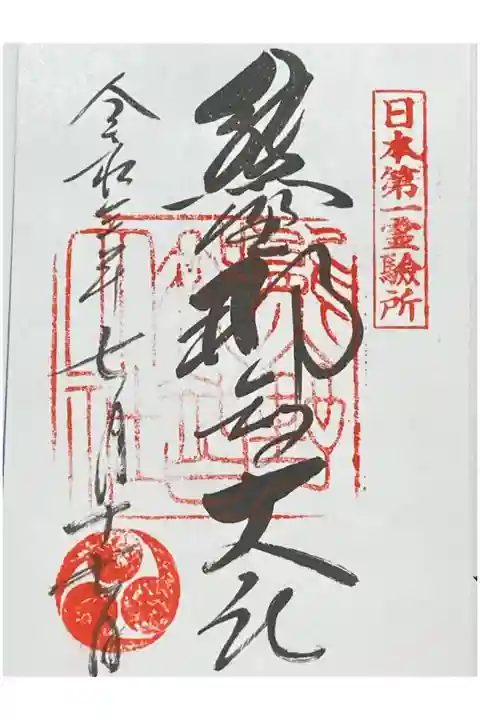 日本第一霊驗所
熊野那智大社
令和元年七月十七日